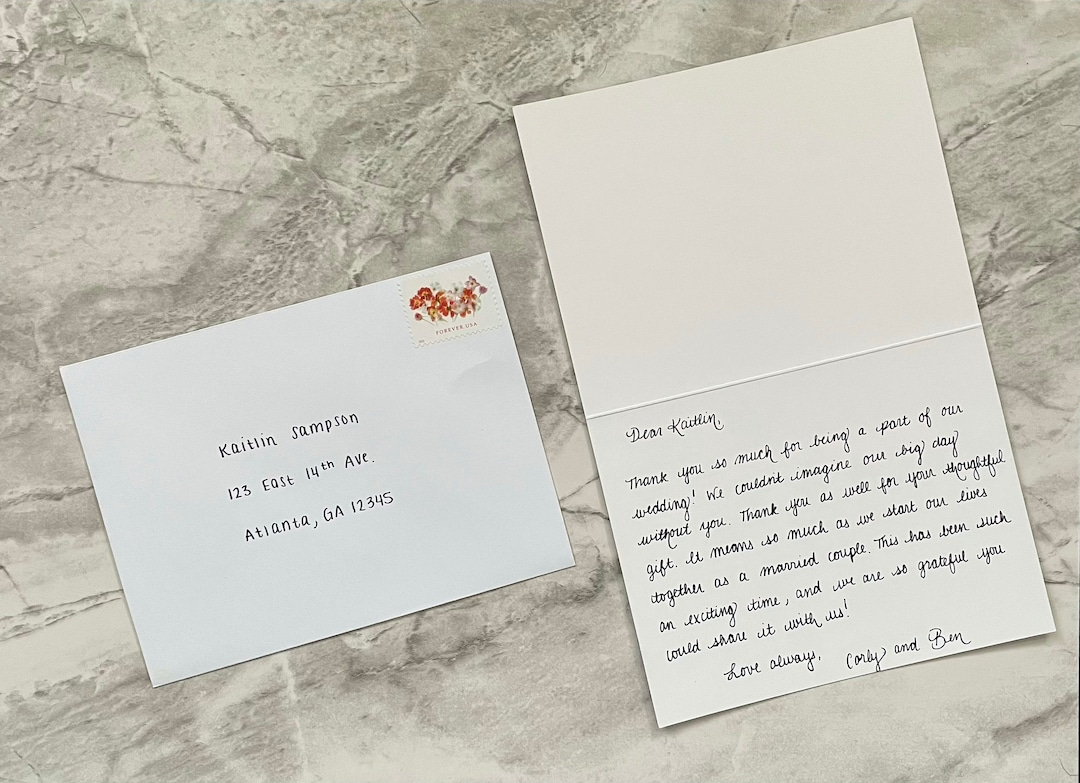 FOREVER USA
Kaitlin Sampson
123 East 14th Ave.
Atlanta, GA 12345
Dear Kaitlin,
Thank you so much for being a part of our
wedding! We couldn't imagine our big day
without you. Thank you as well for your thoughtful
gift. It means so much as we start our lives
together as a married couple. This has been such
an exciting time, and we are so grateful you
could share it with us!
Love always, Carly and Ben